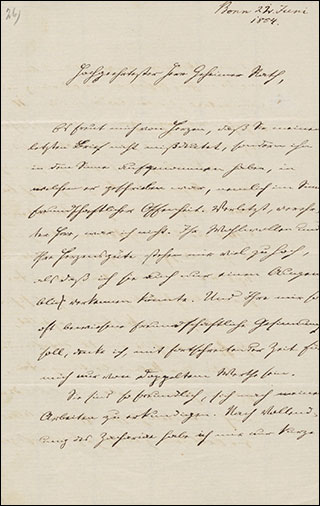 26)
Bonn 22 Juni
1884.
Hochgeehrtester Herr Geheimer Rath,
Es freut mich von Herzen, daß Sie meinen
letzten Brief nicht mißdeutet, sondern ihn
in dem Sinne aufgenommen haben, in
welchem er geschrieben war, nemlich im Sinn
freundschaftlicher Offenheit. Verletzt, verehr-
ter Herr, war ich nicht. Ihr Wohlwollen und
Ihre Herzensgüte stehen mir viel zu hoch,
als daß ich sie auch nur einen Augen-
blick verkennen könnte. Und Ihre mir so
oft bewiesene freundschaftliche Gesinnung
soll, denke ich, mit fortschreitender Zeit für
mich nur von doppeltem Werthe sein.
Sie sind so freundlich, sich nach meinen
Arbeiten zu erkundigen. Nach Vollend-
ung des Zachariae habe ich mir nur kurze